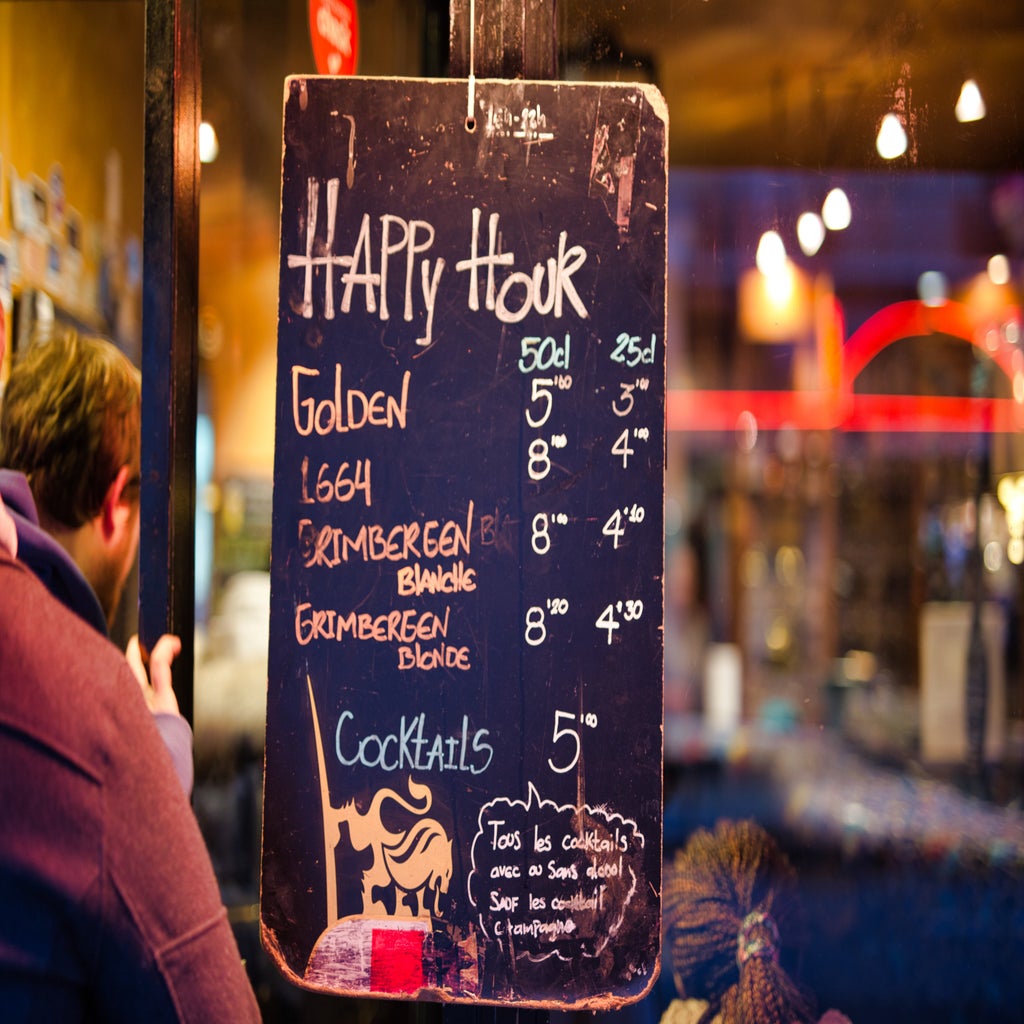 16h-22h
HAPPy HouR
50cl 25cl
GolDEN 5'00 3'00
1664 8'00 4'00
GRIMBERGEN BLANCHE 8'00 4'10
GRIMBERGEN BlONDE 8'20 4'30
CockTAILS 5'00
Tous les cocktails
avec ou Sans alcool
Sauf les cocktail
Champagne